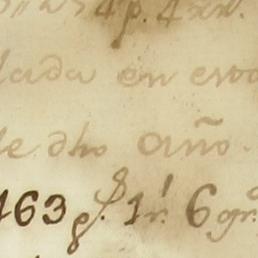 4p. 4
lada en
de dho año.
463 ps. 1r. 6 grs.